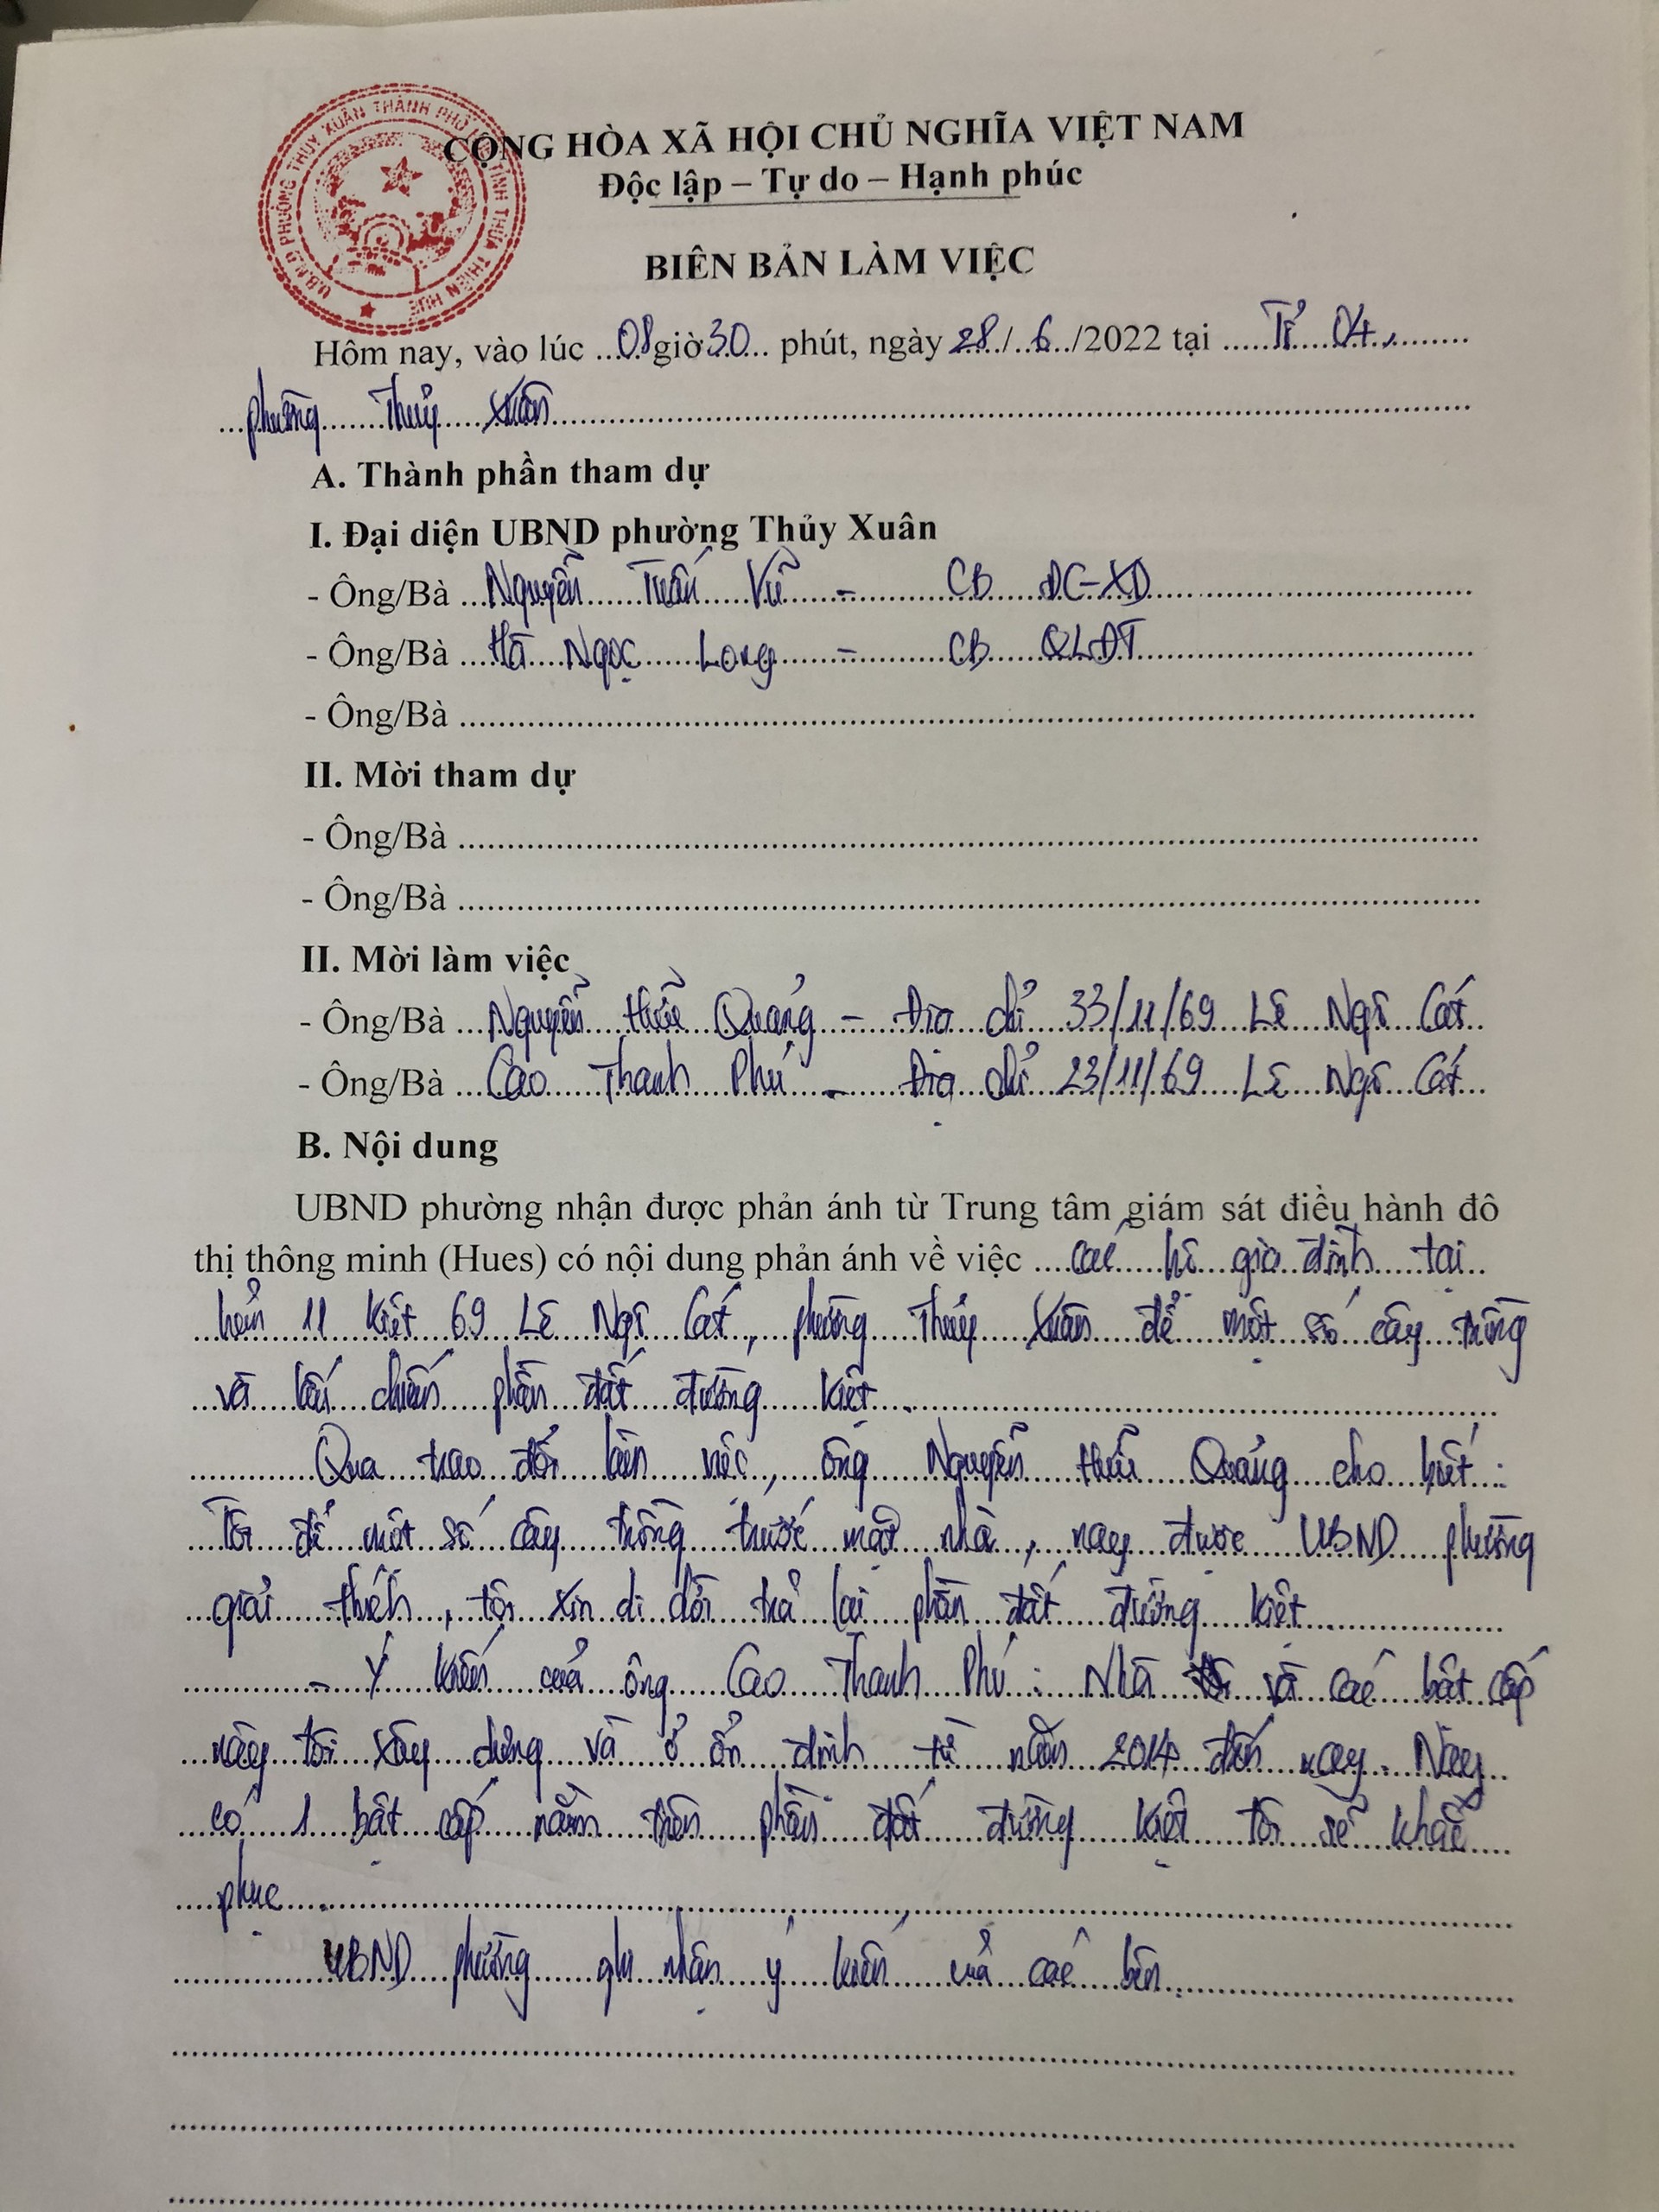 U.B.N.D PHƯỜNG THỦY XUÂN THÀNH PHỐ TỈNH THỪA THIÊN HUẾ
CỘNG HÒA XÃ HỘI CHỦ NGHĨA VIỆT NAM
Độc lập – Tự do – Hạnh phúc
BIÊN BẢN LÀM VIỆC
Hôm nay, vào lúc ...08 giờ 30... phút, ngày 28../..6../2022 tại .....Tổ....04..,........
...phường.......Thủy.....Xuân..........
A. Thành phần tham dự
I. Đại diện UBND phường Thủy Xuân
- Ông/Bà ...Nguyễn......Tuấn.....Vũ.....–.........CB....ĐC-XD..........
- Ông/Bà ...Hà....Ngọc......Long.......–.........CB....QLĐT..........
- Ông/Bà ..........
II. Mời tham dự
- Ông/Bà ..........
- Ông/Bà ..........
II. Mời làm việc
- Ông/Bà ...Nguyễn....Hữu...Quảng..–....Địa...chỉ....33/11/69...Lê...Ngô...Cát..
- Ông/Bà ...Cao.....Thanh....Phú...–.....Địa...chỉ...23/11/69....Lê....Ngô...Cát...
B. Nội dung
UBND phường nhận được phản ánh từ Trung tâm giám sát điều hành đô
thị thông minh (Hues) có nội dung phản ánh về việc ....các....hộ...gia..đình....tại..
...hẻm...11...Kiệt...69..Lê...Ngô...Cát.., phường....Thủy....Xuân....để....một...số...cây...trồng
...và....lấn...chiếm....phần...đất....đường.....kiệt..........
.............Qua...trao...đổi...làm....việc.,...ông....Nguyễn....Hữu....Quảng...cho..biết..:
....Tôi...để...một..số...cây....trồng...trước...mặt...nhà..,...nay...được....UBND....phường
...giải.....thích..., tôi...xin..di..dời...trả...lại....phần...đất....đường....kiệt..........
.............–...Ý...kiến...của...ông....Cao....Thanh....Phú..:...Nhà và...các...bật..cấp
...này..tôi...xây....dựng....và...ở..ổn....định....từ....năm...2014..đến...nay.....Nay..
...có....1...bật...cấp....nằm...trên....phần....đất....đường....kiệt...tôi...sẽ...khắc....
....phục..........
.............UBND...phường.....ghi..nhận....ý....kiến....của...các...bên..........